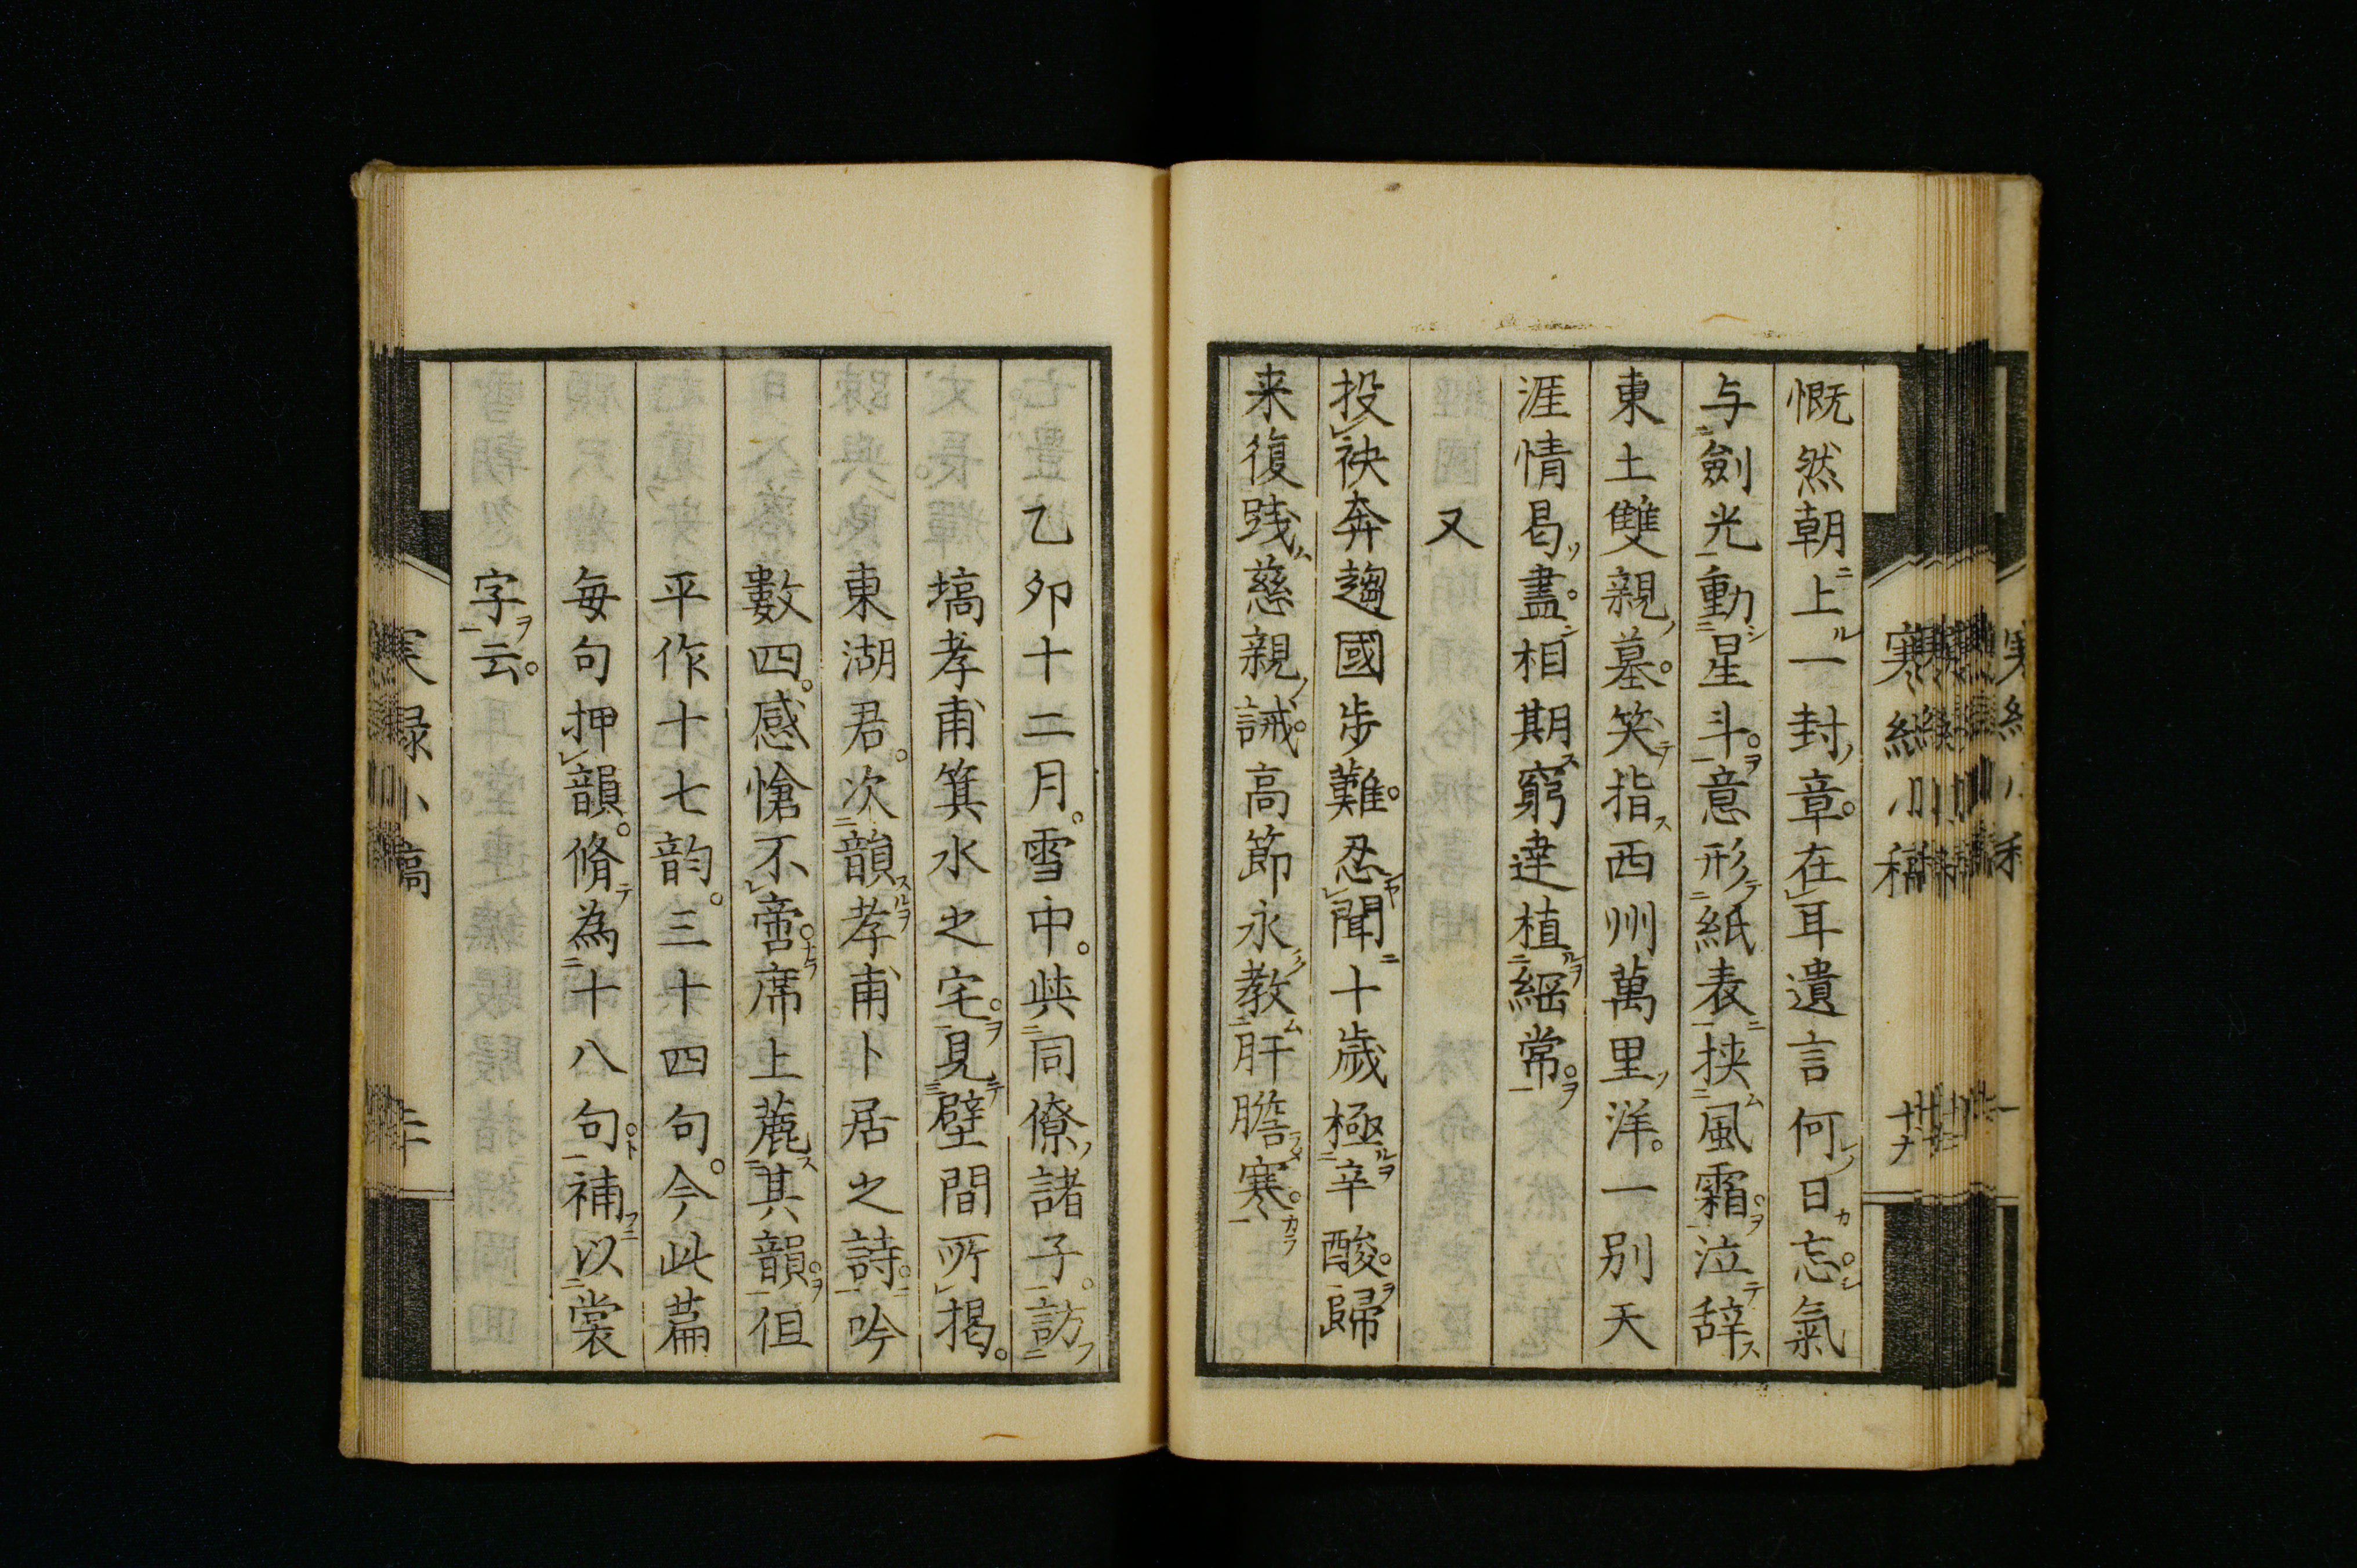 慨然朝上一封章在耳遺言何日忘氣
与劍光動星斗意形紙表挾風霜泣辞
東土雙親墓笑指西州萬里洋一別天
涯情曷盡相期窮達植綱常
又
投袂奔趨國步難忍聞十歲極辛酸歸
来復踐慈親誡高節永教肝膽寒
乙卯十二月雪中與同僚諸子訪
塙孝甫箕水之宅見壁間所揭
東湖君次韻孝甫卜居之詩吟
數四感愴不啻席上麓其韻但
平作十七韵三十四句今此篇
每句押韻脩為十八句補以裳
字云